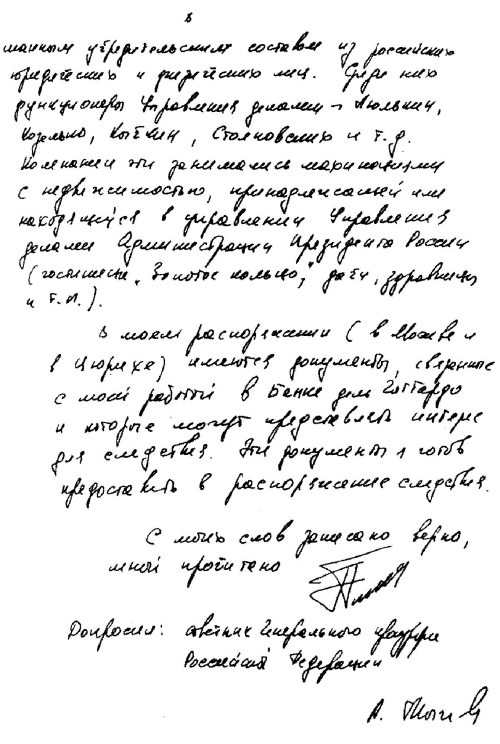 8
учредительским составом из российских
юридических и физических лиц. Среди них
функционеры Управления делами –
Козельно, Кыткин, Столповских и т.д.
Компании эти занимались махинациями
с недвижимостью, принадлежащей или
находящейся в управлении Управления
делами Администрации Президента России
(гостиницы "Золотое кольцо", дачи, здравницы
и т.п.).
В моем распоряжении (в Москве и
в Цюрихе) имеются документы, связанные
с моей работой в Банке дель Готтардо
и которые могут представлять интерес
для следствия. Эти документы я готов
предоставить в распоряжение следствия.
С моих слов записано верно,
мной прочитано
Допросил: советник Генерального прокурора
Российской Федерации